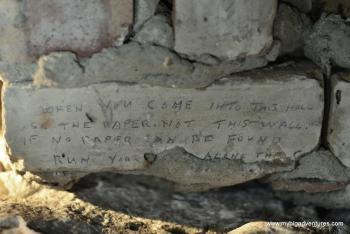 WHEN YOU COME INTO THIS HALL
THE PAPER NOT THIS WALL.
IF NO PAPER CAN BE FOUND
RUN YOUR ALONG THE
www.mybigadventures.com